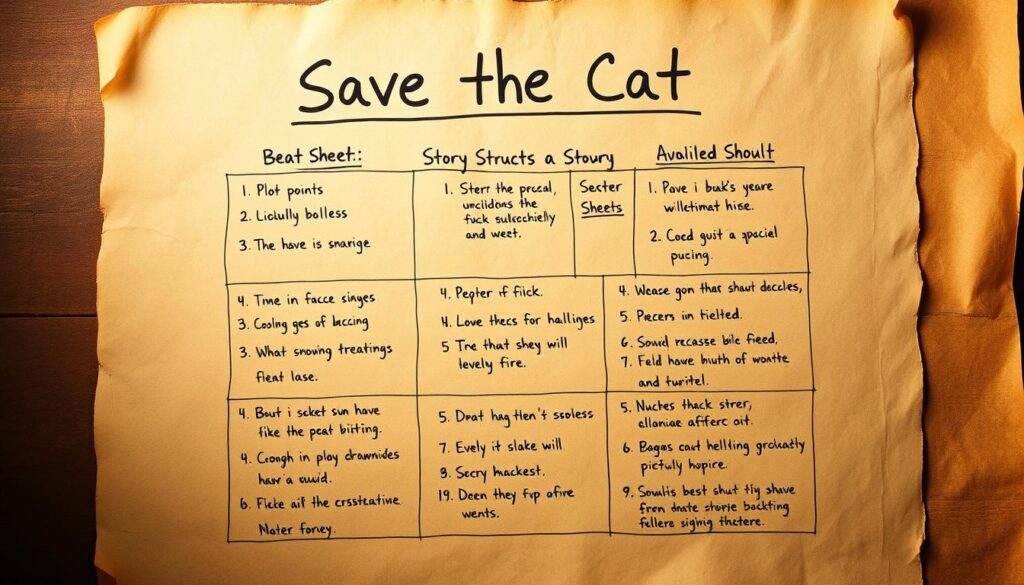 Save the Cat
Beat Sheet:
Story Structs a Stoury
Avaliled Shoult
1. Plot points
2. Liclully bolless
3. The have is snarige
1. Sterr the precal,
unclidons the
fuck sulrechielly
and weet.
Secter
Sheets
1. Pove i buk's yeare
willetimat hise.
2. Cocd guit a ppaciel
pucing.
4. Tme in facce singes
3. Cooling ges of laccing
3. What snowing treatings
fleat lase.
4. Pepter if flick.
4. Love thecs for halliges
5 Tre that shey will
levely fire.
4. Wease gon that shaut deccles,
5. Precers in tielted.
6. Sound recasse bile fieed,
7. Feld have buth of wontte
and turitel.
4. Bout i scket sun have
fike the peat bitting.
4. Cosngh in ploy drawnides
haw a suvid.
6. Flcke ail the crsstcative
Nater foney.
5. Drat hag tlen't ssoless
7. Evely it slake will
3. Secry mackest.
19. Deen they fvp ofire
wents.
5. Nuches thack strer,
alloniae afferc oit.
6. Bagas cast hellting grockatly
pictwly hopire.
9. Soulis best shut tly shave
fron dnate storie backting
fellere signing thetere.